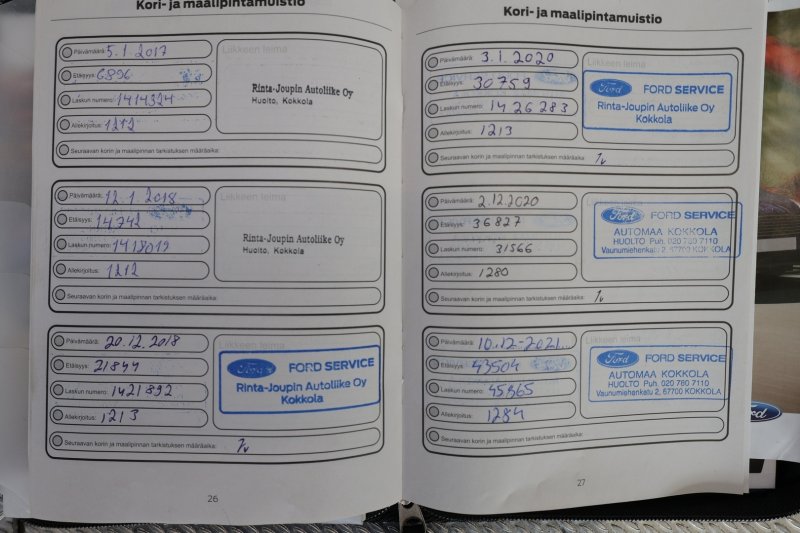 Kori- ja maalipintamuistio
Päivämäärä: 5.1.2017
Etäisyys: 6896
Laskun numero: 1414324
Allekirjoitus: 1212
Seuraavan korin ja maalipinnan tarkistuksen määräaika:
Liikkeen leima
Rinta-Joupin Autoliike Oy
Huolto, Kokkola
Päivämäärä: 12.1.2018
Etäisyys: 14742
Laskun numero: 1418019
Allekirjoitus: 1212
Seuraavan korin ja maalipinnan tarkistuksen määräaika:
Liikkeen leima
Rinta-Joupin Autoliike Oy
Huolto, Kokkola
Päivämäärä: 20.12.2018
Etäisyys: 21844
Laskun numero: 1421892
Allekirjoitus: 1213
Seuraavan korin ja maalipinnan tarkistuksen määräaika: 1v
Liikkeen leima
Ford FORD SERVICE
Rinta-Joupin Autoliike Oy
Kokkola
26
Kori- ja maalipintamuistio
Päivämäärä: 3.1.2020
Etäisyys: 30759
Laskun numero: 1426283
Allekirjoitus: 1213
Seuraavan korin ja maalipinnan tarkistuksen määräaika: 1v
Liikkeen leima
Ford FORD SERVICE
Rinta-Joupin Autoliike Oy
Kokkola
Päivämäärä: 2.12.2020
Etäisyys: 36827
Laskun numero: 31566
Allekirjoitus: 1280
Seuraavan korin ja maalipinnan tarkistuksen määräaika: 1v
Ford FORD SERVICE
AUTOMAA KOKKOLA
HUOLTO Puh. 020 780 7110
Vaunumiehenkatu 2, 67700 KOKKOLA
Päivämäärä: 10.12-2021
Etäisyys: 43504
Laskun numero: 45365
Allekirjoitus: 1284
Seuraavan korin ja maalipinnan tarkistuksen määräaika:
Liikkeen leima
Ford FORD SERVICE
AUTOMAA KOKKOLA
HUOLTO Puh. 020 780 7110
Vaunumiehenkatu 2, 67700 KOKKOLA
27
Ford